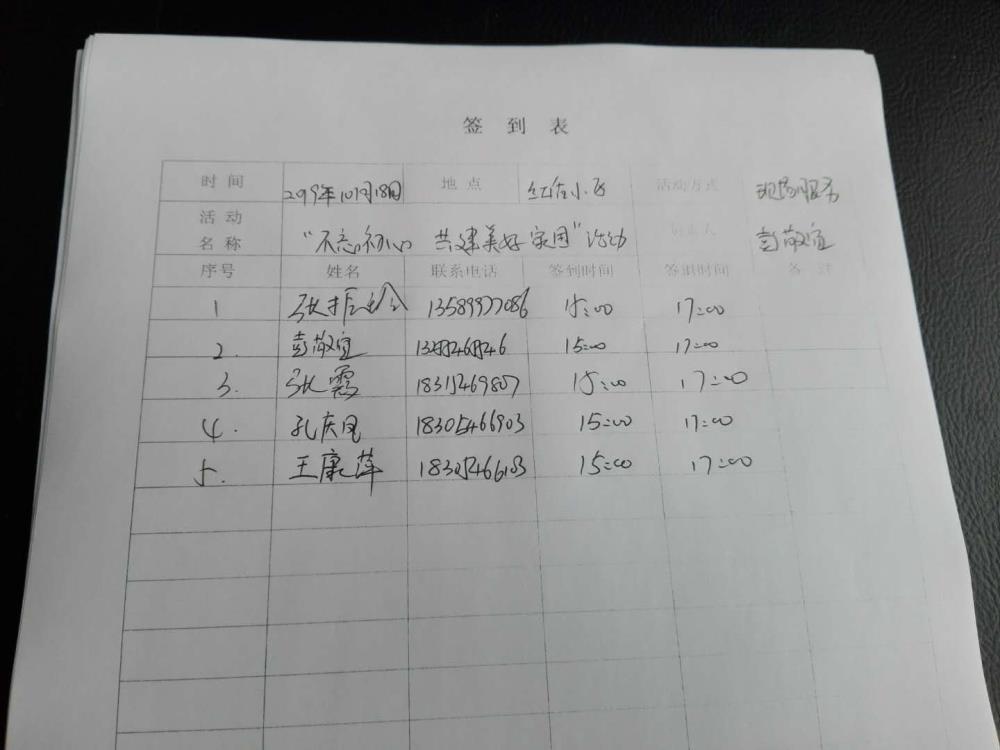 签 到 表
时 间 2019年10月18日 地 点 红佳小区 活动方式 现场服务
活 动 名 称 “不忘初心 共建美好家园”活动 负责人 彭敬宜
序号 姓名 联系电话 签到时间 签退时间 备 注
1 张振玲 13589977086 15:00 17:00
2. 彭敬宜 15:00 17:00
3. 张霞 18315469807 15:00 17:00
4. 孔庆凤 18305466903 15:00 17:00
5. 王康萍 18305466103 15:00 17:00